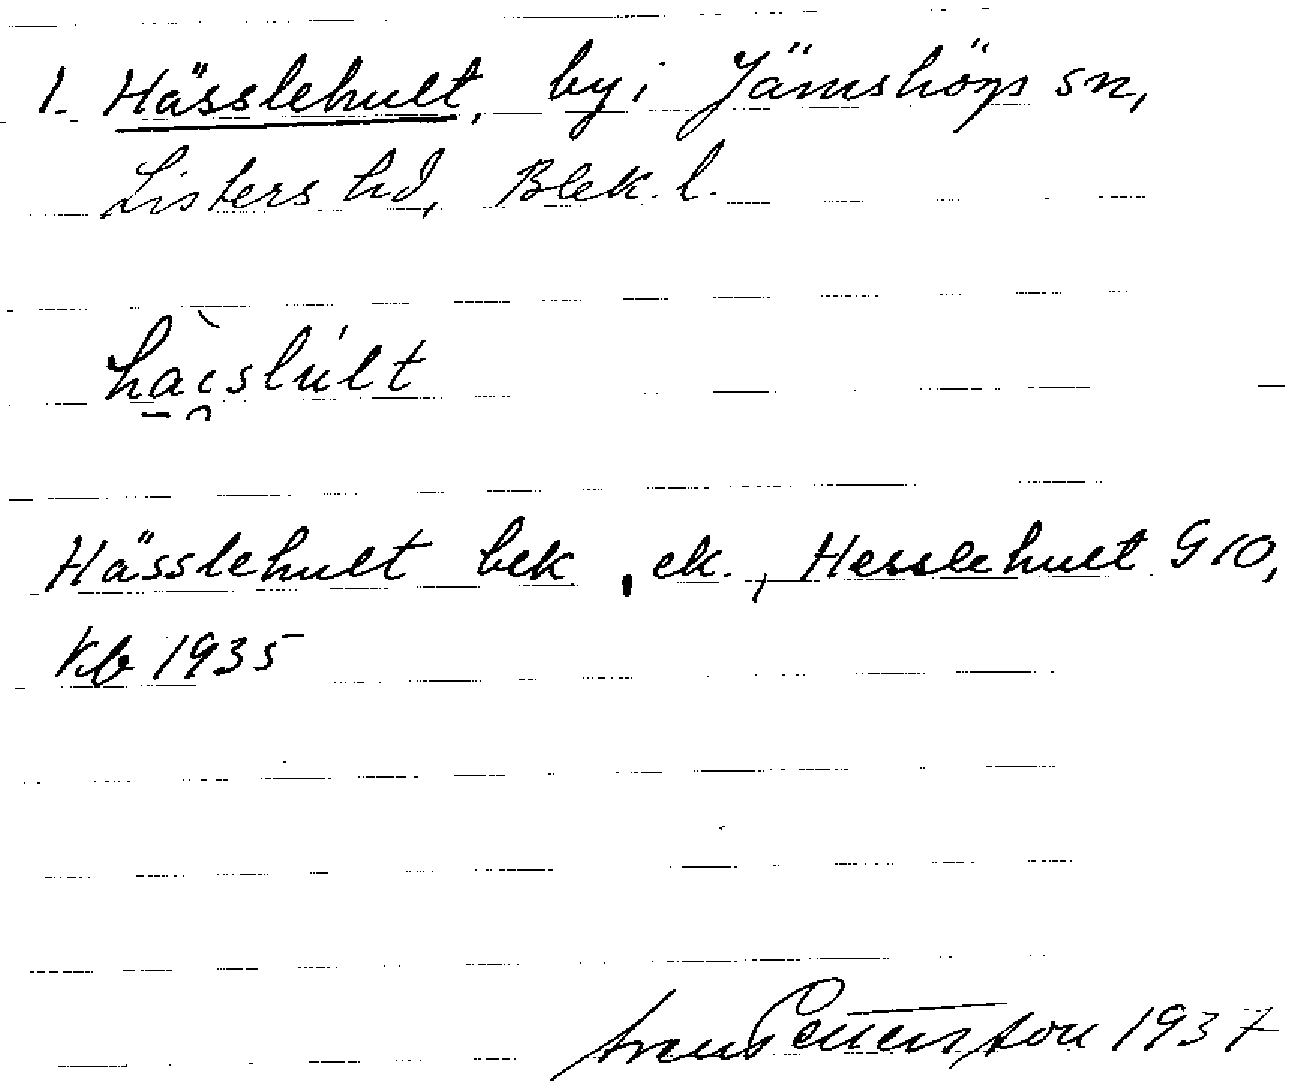 1. Hässlehult, by i Jämshögs sn,
Listers hd, Blek. l.
Hässlehult bek, ek., Hesslehult G 10,
Kb 1935
Pettersson 1937